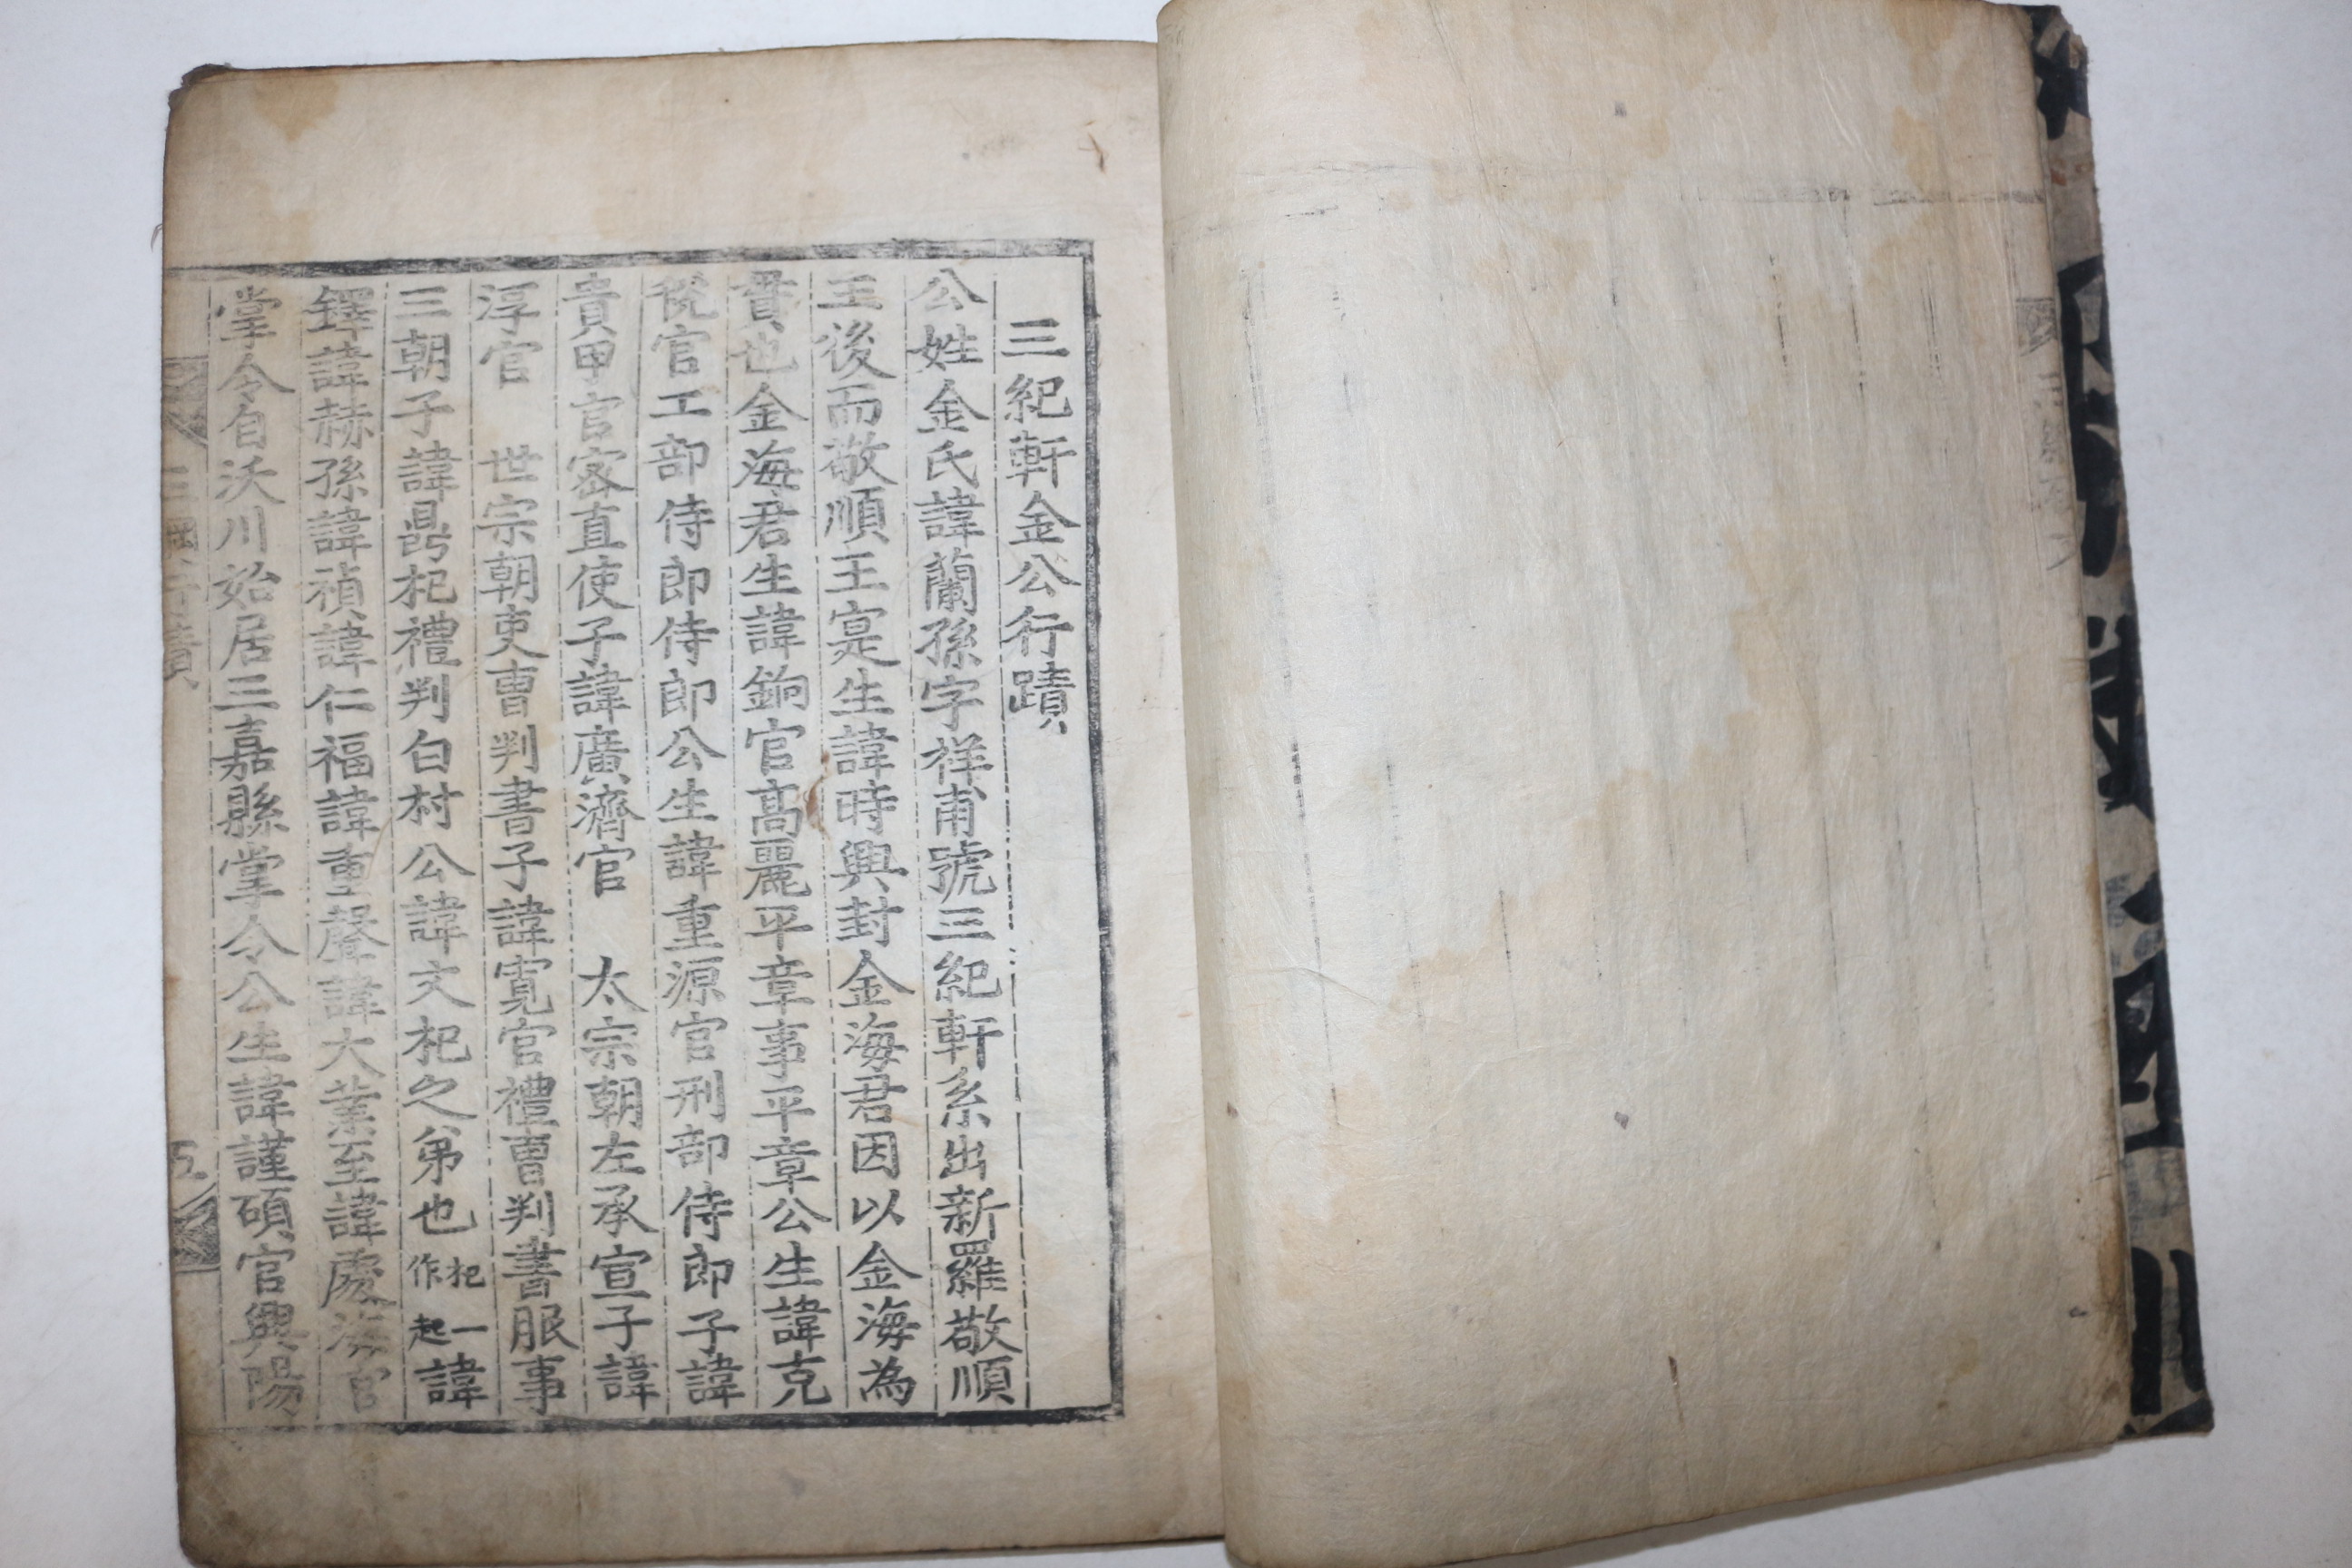 三紀軒金公行蹟
公姓金氏諱蘭孫字祥甫號三紀軒系出新羅敬順
王後而敬順王寔生諱時興封金海君因以金海為
貫也金海君生諱銁官高麗平章事平章公生諱克
稅官工部侍郎侍郎公生諱重源官刑部侍郎子諱
貴甲官密直使子諱廣濟官 太宗朝左承宣子諱
淳官 世宗朝吏曹判書子諱寬官禮曹判書服事
三朝子諱鼎杞禮判白村公諱文杞之弟也杞一作起諱
鐸諱赫孫諱禎諱仁福諱重聲諱大業至諱處海官
掌令自沃川始居三嘉縣掌令公生諱謹碩官興陽
五